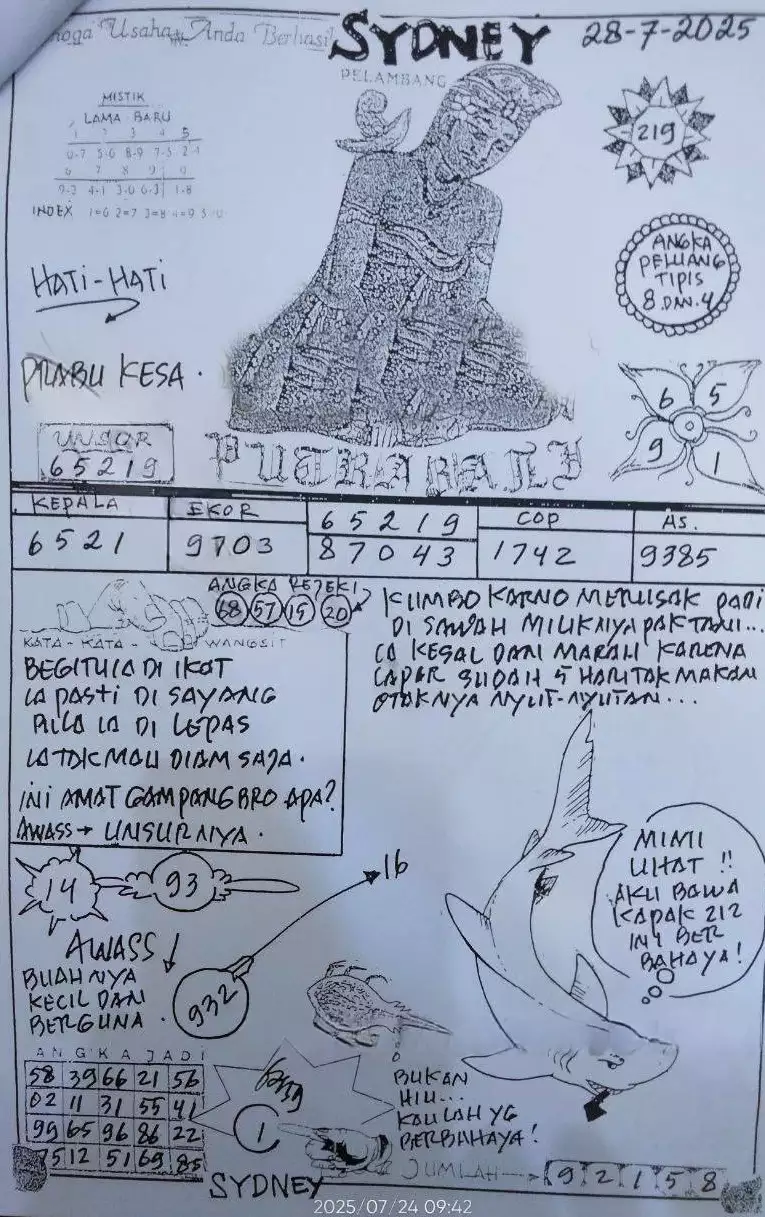 Usaha Anda Berhasil
SYDNEY
28-7-2025
PELAMBANG
MISTIK
LAMA BARU
1 2 3 4 5
0-7 5-6 8-9 7-5 2-1
6 7 8 9 0
9-3 4-1 3-0 6-3 1-8
INDEX 1=6 2=7 3=8 4=9 5=0
219
HATI-HATI
ANGKA
PELUANG
TIPIS
8 DAN 4
PRABU KESA.
UNSUR
65219
PUTRA BALI
6 5
9 1
KEPALA
6521
EKOR
9703
65219
87043
COP
1742
AS.
9385
ANGKA REJEKI
68 57 15 20
KATA-KATA-WANGSIT
BEGITU IA DI IKAT
IA PASTI DI SAYANG
BILA IA DI LEPAS
IA TAK MAU DIAM SAJA.
INI AMAT GAMPANG BRO APA?
AWASS → UNSURNYA.
KUMBO KARNO MERUSAK PADI
DI SAWAH MILIKNYA PAK TANI...
IA KESAL DAN MARAH KARENA
LAPAR SUDAH 5 HARI TAK MAKAN
OTAKNYA NYUT-NYUTAN...
14
93
16
AWASS!
BUAHNYA
KECIL DAN
BERGUNA.
932
MIMI
LIHAT !!
AKU BAWA
KAPAK 212
INI BER
BAHAYA!
ANGKA JADI
58 39 66 21 56
02 11 31 55 41
99 65 96 86 22
75 12 51 69 85
1
SYDNEY
BUKAN
HIU...
KAULAH YG
BERBAHAYA!
JUMLAH → 9 2 1 5 8
2025/07/24 09:42